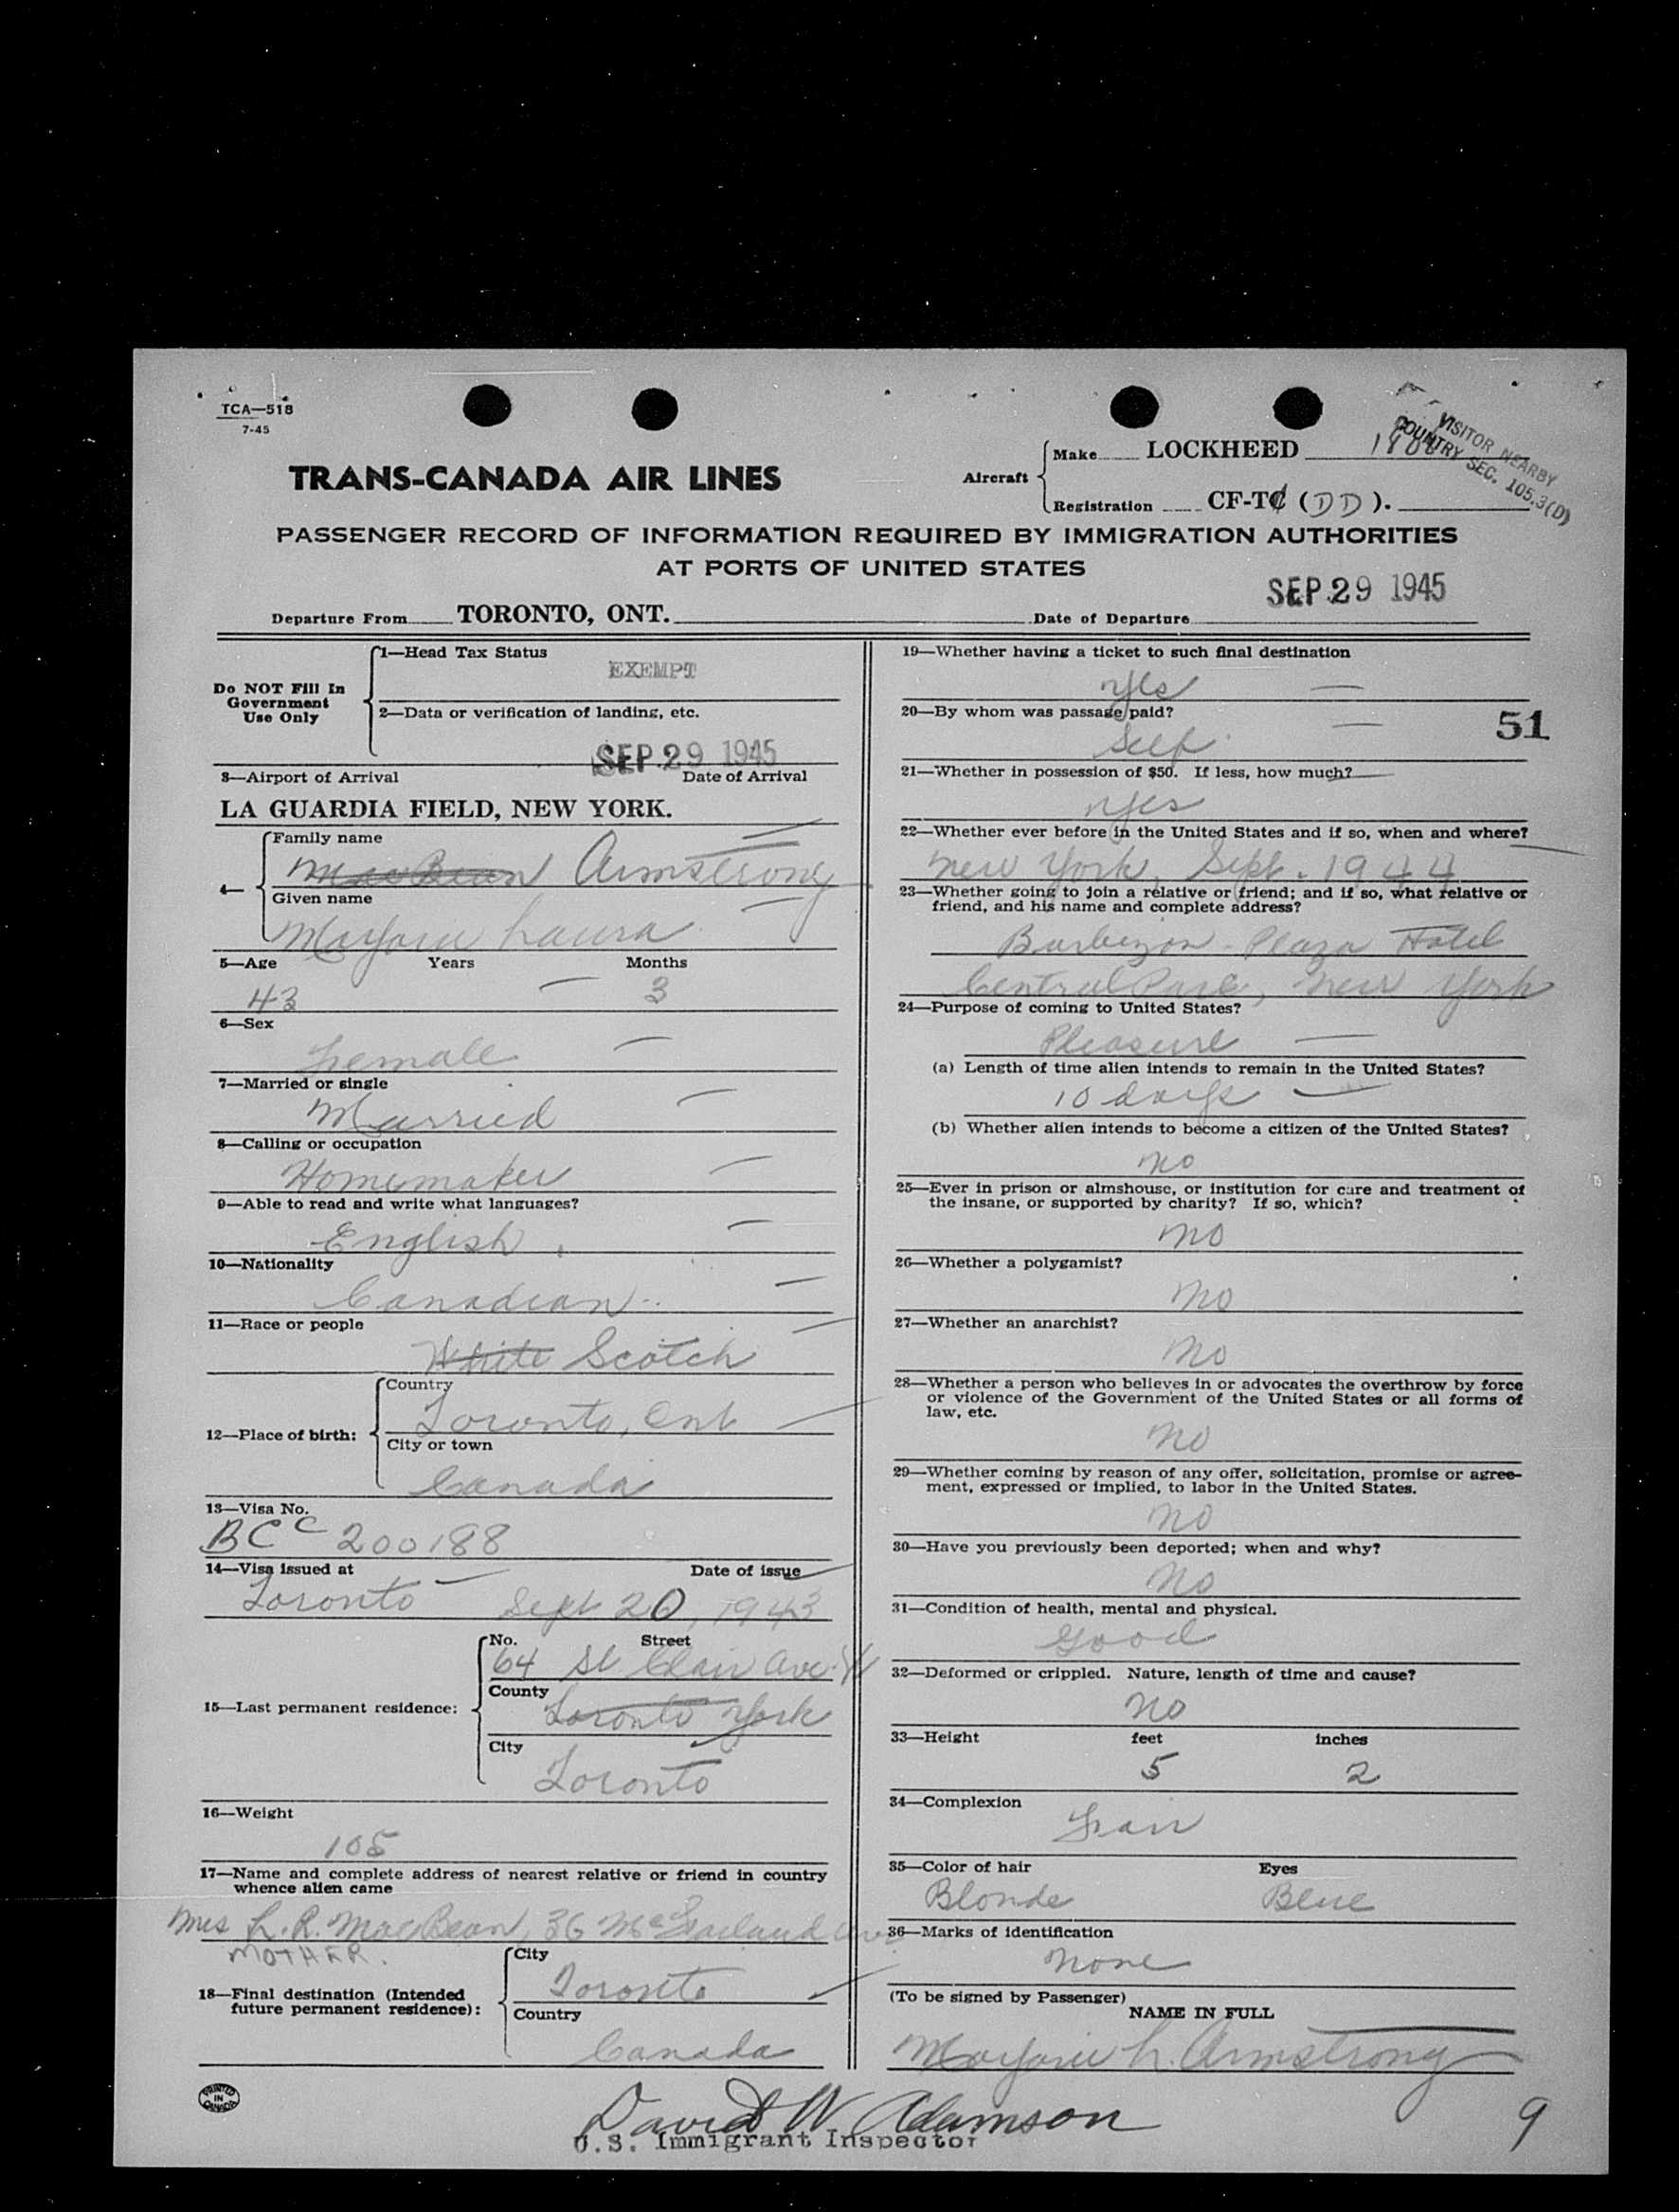 TCA—518
7-45
VISITOR NEARBY
COUNTRY SEC. 105.3(D)
Aircraft
Make LOCKHEED
Registration CF-TC (DD).
TRANS-CANADA AIR LINES
PASSENGER RECORD OF INFORMATION REQUIRED BY IMMIGRATION AUTHORITIES
AT PORTS OF UNITED STATES
SEP 29 1945
Departure From TORONTO, ONT. Date of Departure
Do NOT Fill In
Government
Use Only
1—Head Tax Status
EXEMPT
2—Data or verification of landing, etc.
SEP 29 1945
3—Airport of Arrival Date of Arrival
LA GUARDIA FIELD, NEW YORK.
4—
Family name
MacBean Armstrong
Given name
Marjorie Laura
5—Age Years Months
43 3
6—Sex
Female
7—Married or single
Married
8—Calling or occupation
Homemaker
9—Able to read and write what languages?
English
10—Nationality
Canadian
11—Race or people
White Scotch
12—Place of birth:
Country
Toronto, Ont
City or town
Canada
13—Visa No.
BCC 200188
14—Visa issued at Date of issue
Toronto Sept 20, 1943
15—Last permanent residence:
No. Street
64 St Clair Ave. W
County
Toronto York
City
Toronto
16—Weight
105
17—Name and complete address of nearest relative or friend in country
whence alien came
Mrs L. R. MacBean, 36 Ave
MOTHER.
18—Final destination (Intended
future permanent residence):
City
Toronto
Country
Canada
PRINTED
IN
CANADA
19—Whether having a ticket to such final destination
yes
20—By whom was passage paid?
51
Self
21—Whether in possession of $50. If less, how much?
yes
22—Whether ever before in the United States and if so, when and where?
New York, Sept. 1944
23—Whether going to join a relative or friend; and if so, what relative or
friend, and his name and complete address?
Barbizon-Plaza Hotel
Central Park, New York
24—Purpose of coming to United States?
Pleasure
(a) Length of time alien intends to remain in the United States?
10 days
(b) Whether alien intends to become a citizen of the United States?
no
25—Ever in prison or almshouse, or institution for care and treatment of
the insane, or supported by charity? If so, which?
no
26—Whether a polygamist?
no
27—Whether an anarchist?
no
28—Whether a person who believes in or advocates the overthrow by force
or violence of the Government of the United States or all forms of
law, etc.
no
29—Whether coming by reason of any offer, solicitation, promise or agree-
ment, expressed or implied, to labor in the United States.
no
30—Have you previously been deported; when and why?
no
31—Condition of health, mental and physical.
Good
32—Deformed or crippled. Nature, length of time and cause?
no
33—Height feet inches
5 2
34—Complexion
Fair
35—Color of hair Eyes
Blonde Blue
36—Marks of identification
none
(To be signed by Passenger)
NAME IN FULL
Marjorie L. Armstrong
David W Adamson
U.S. Immigrant Inspector
9